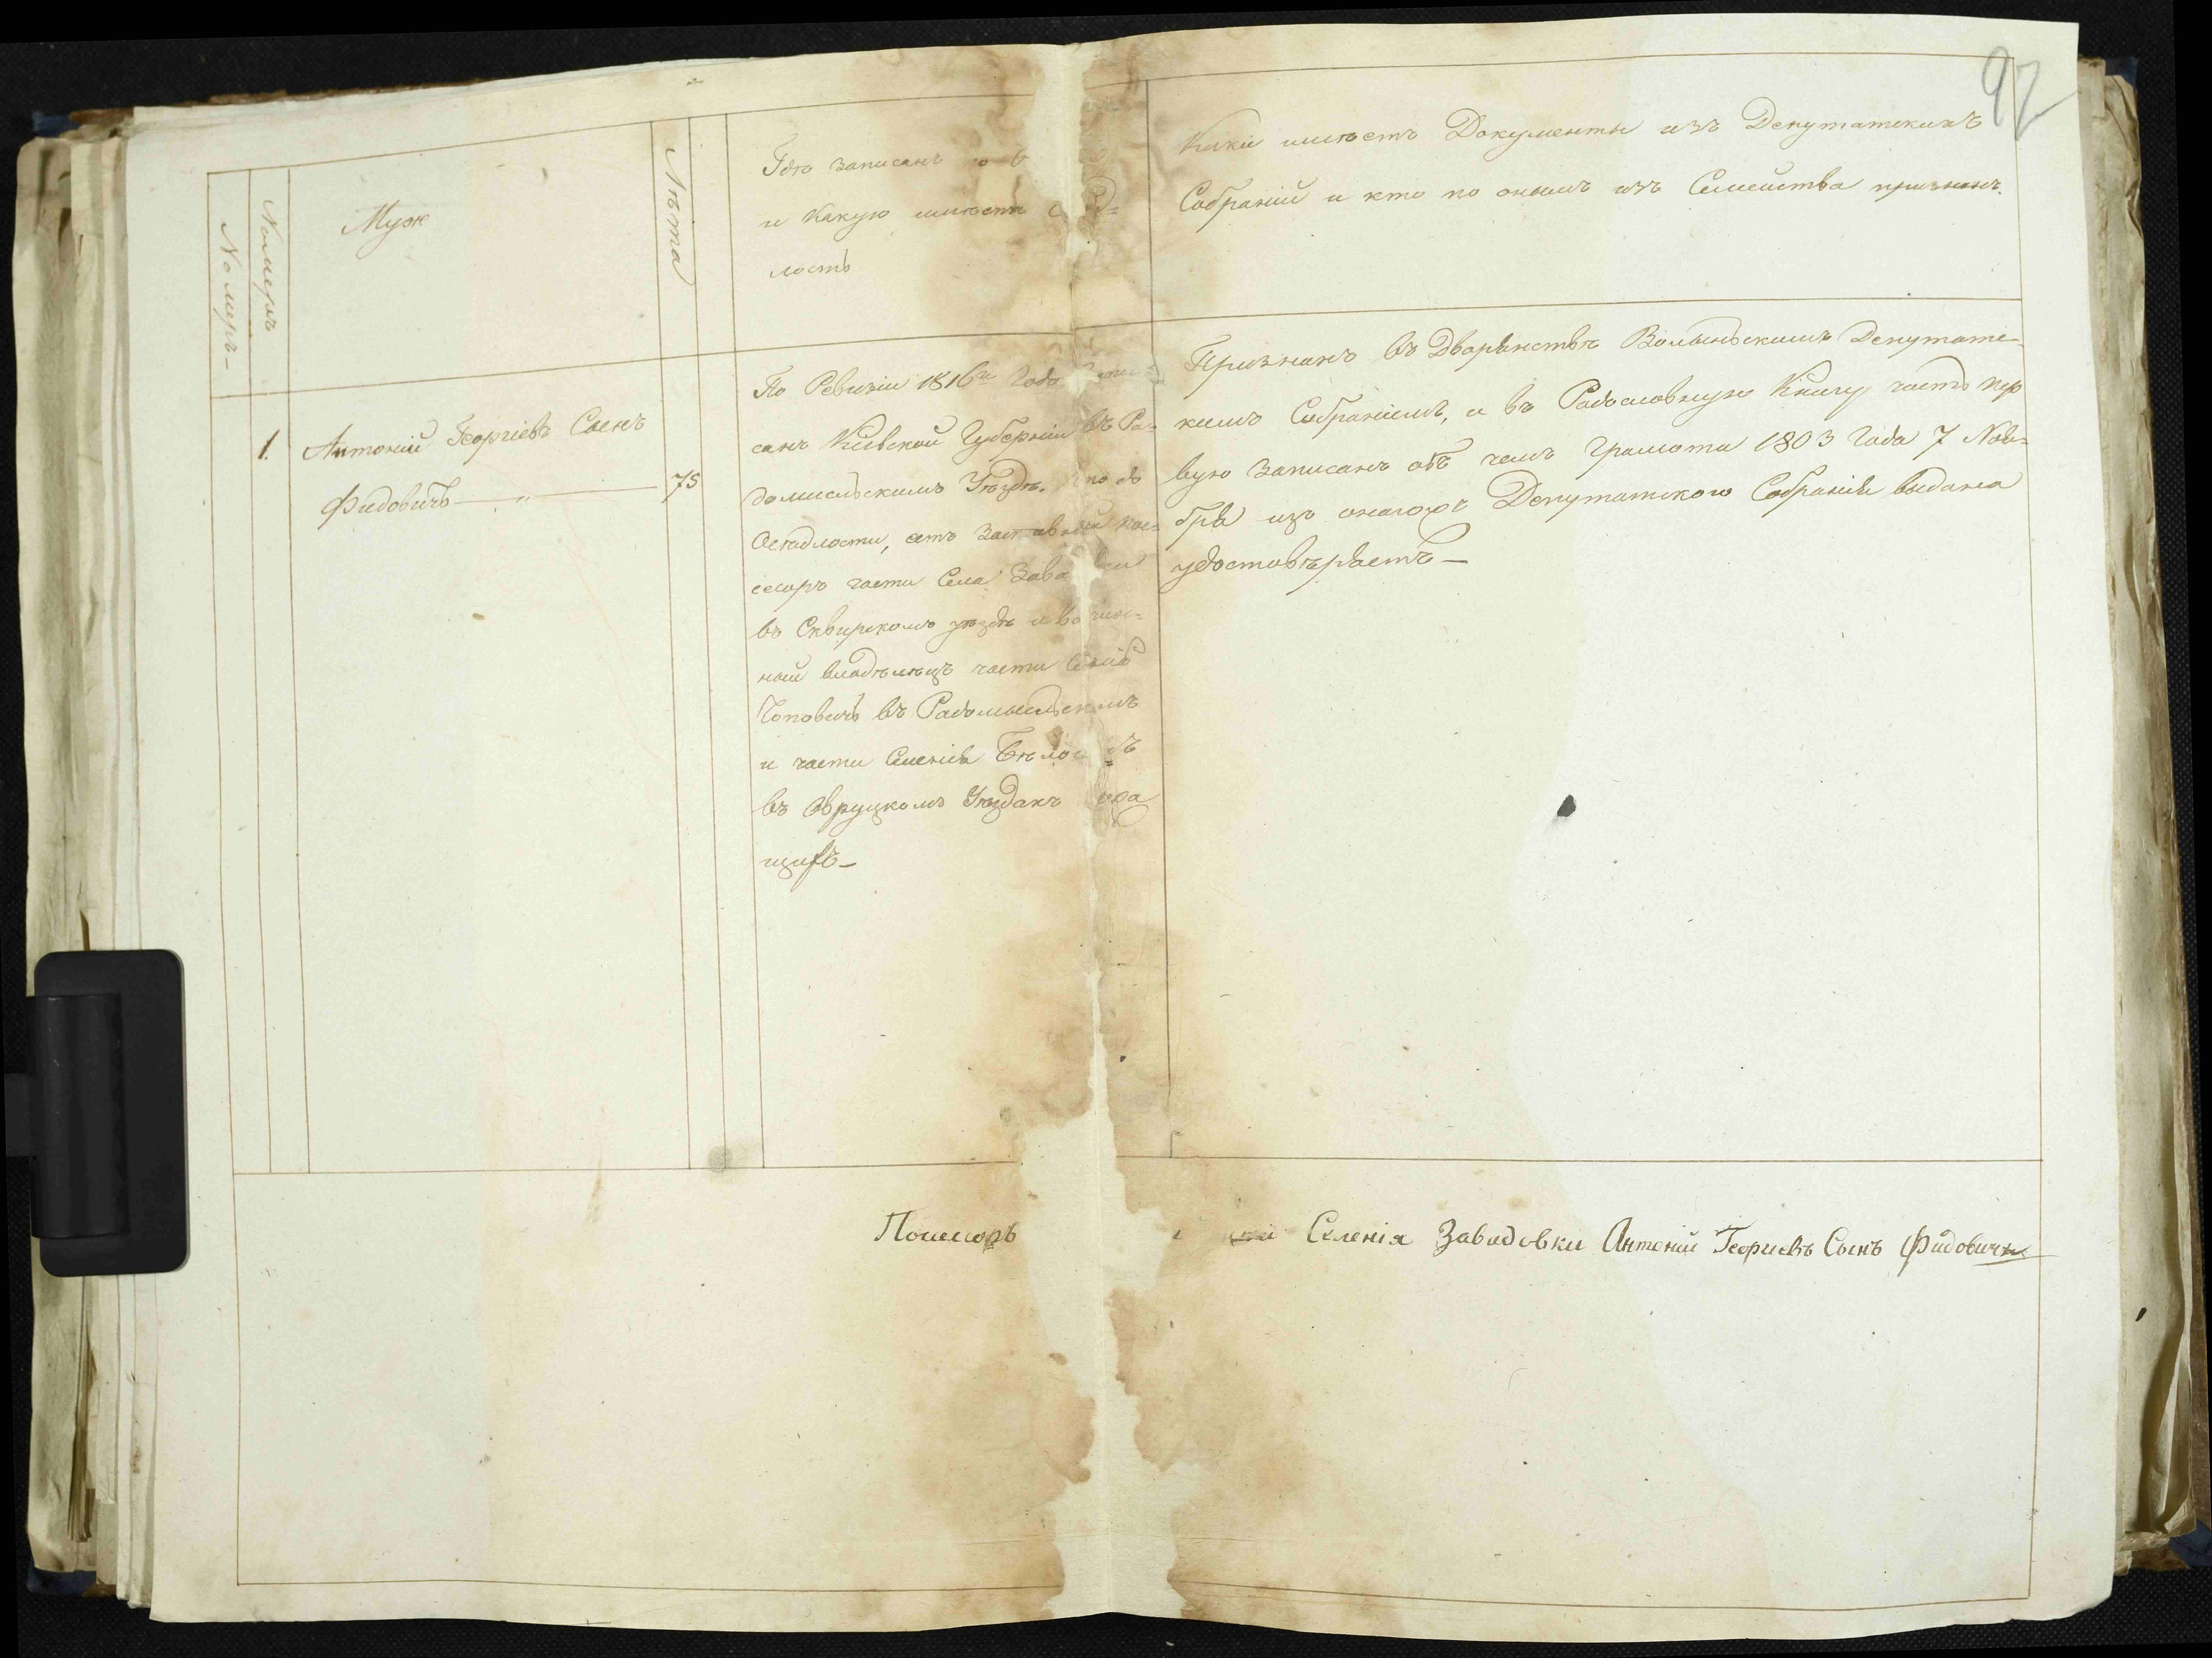 92
Номеръ
Номеръ
Муж
Лѣта
Гдѣ записанъ по
и какую имѣетъ
лость
Какіе имѣетъ Документы изъ Депутатскихъ
Собраній и кто по онымъ изъ Семейства признанъ.
1. Антоній Георгіевъ Сынъ
Фидовичъ — „ — 75
По Ревизіи 1816го Года
санъ Кіевской Губерніи въ Ра-
домысльскимъ Уѣздѣ. по
Осѣдлости, есть Заставный пос-
сесоръ части Села
въ Сквирскомъ уѣздѣ и вотчин-
ный владѣлецъ части Селенія
Чоповичъ въ Радомысльскимъ
и части Селенія
въ Овруцкомъ Уѣздахъ
щихъ —
Признанъ въ Дворянствѣ Волынскимъ Депутатс-
кимъ Собраніемъ, и въ Родословную Книгу часть пер
вую записанъ объ чемъ Грамота 1803 Года 7 Нояб-
бря изъ онагожъ Депутатского Собранія выдана
удостовѣряетъ —
Посессоръ Селенія Завадовки Антоній Георгіевъ Сынъ Фидовичъ